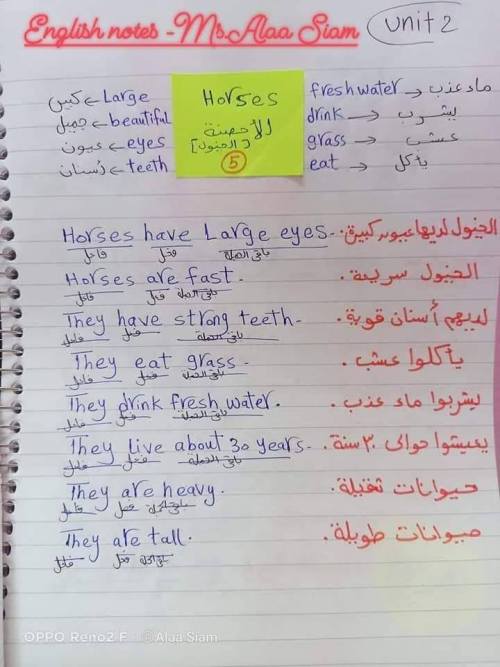 English notes - Ms. Alaa Siam
Unit 2
Large → كبير
beautiful → جميل
eyes → عيون
teeth → أسنان
Horses
الأحصنة
[الخيول]
5
fresh water → ماء عذب
drink → يشرب
grass → عشب
eat → يأكل
Horses have Large eyes. الخيول لديها عيون كبيرة.
فاعل فعل باقي الجملة
Horses are fast. الخيول سريعة.
فاعل فعل باقي الجملة
They have strong teeth. لديهم أسنان قوية.
فاعل فعل باقي الجملة
They eat grass. يأكلوا عشب.
فاعل فعل باقي الجملة
They drink fresh water. يشربوا ماء عذب.
فاعل فعل باقي الجملة
They live about 30 years. يعيشوا حوالى ٣٠ سنة.
فاعل فعل باقي الجملة
They are heavy. حيوانات ثقيلة.
فاعل فعل باقي الجملة
They are tall. حيوانات طويلة.
فاعل فعل باقي الجملة
OPPO Reno2 F @Alaa Siam